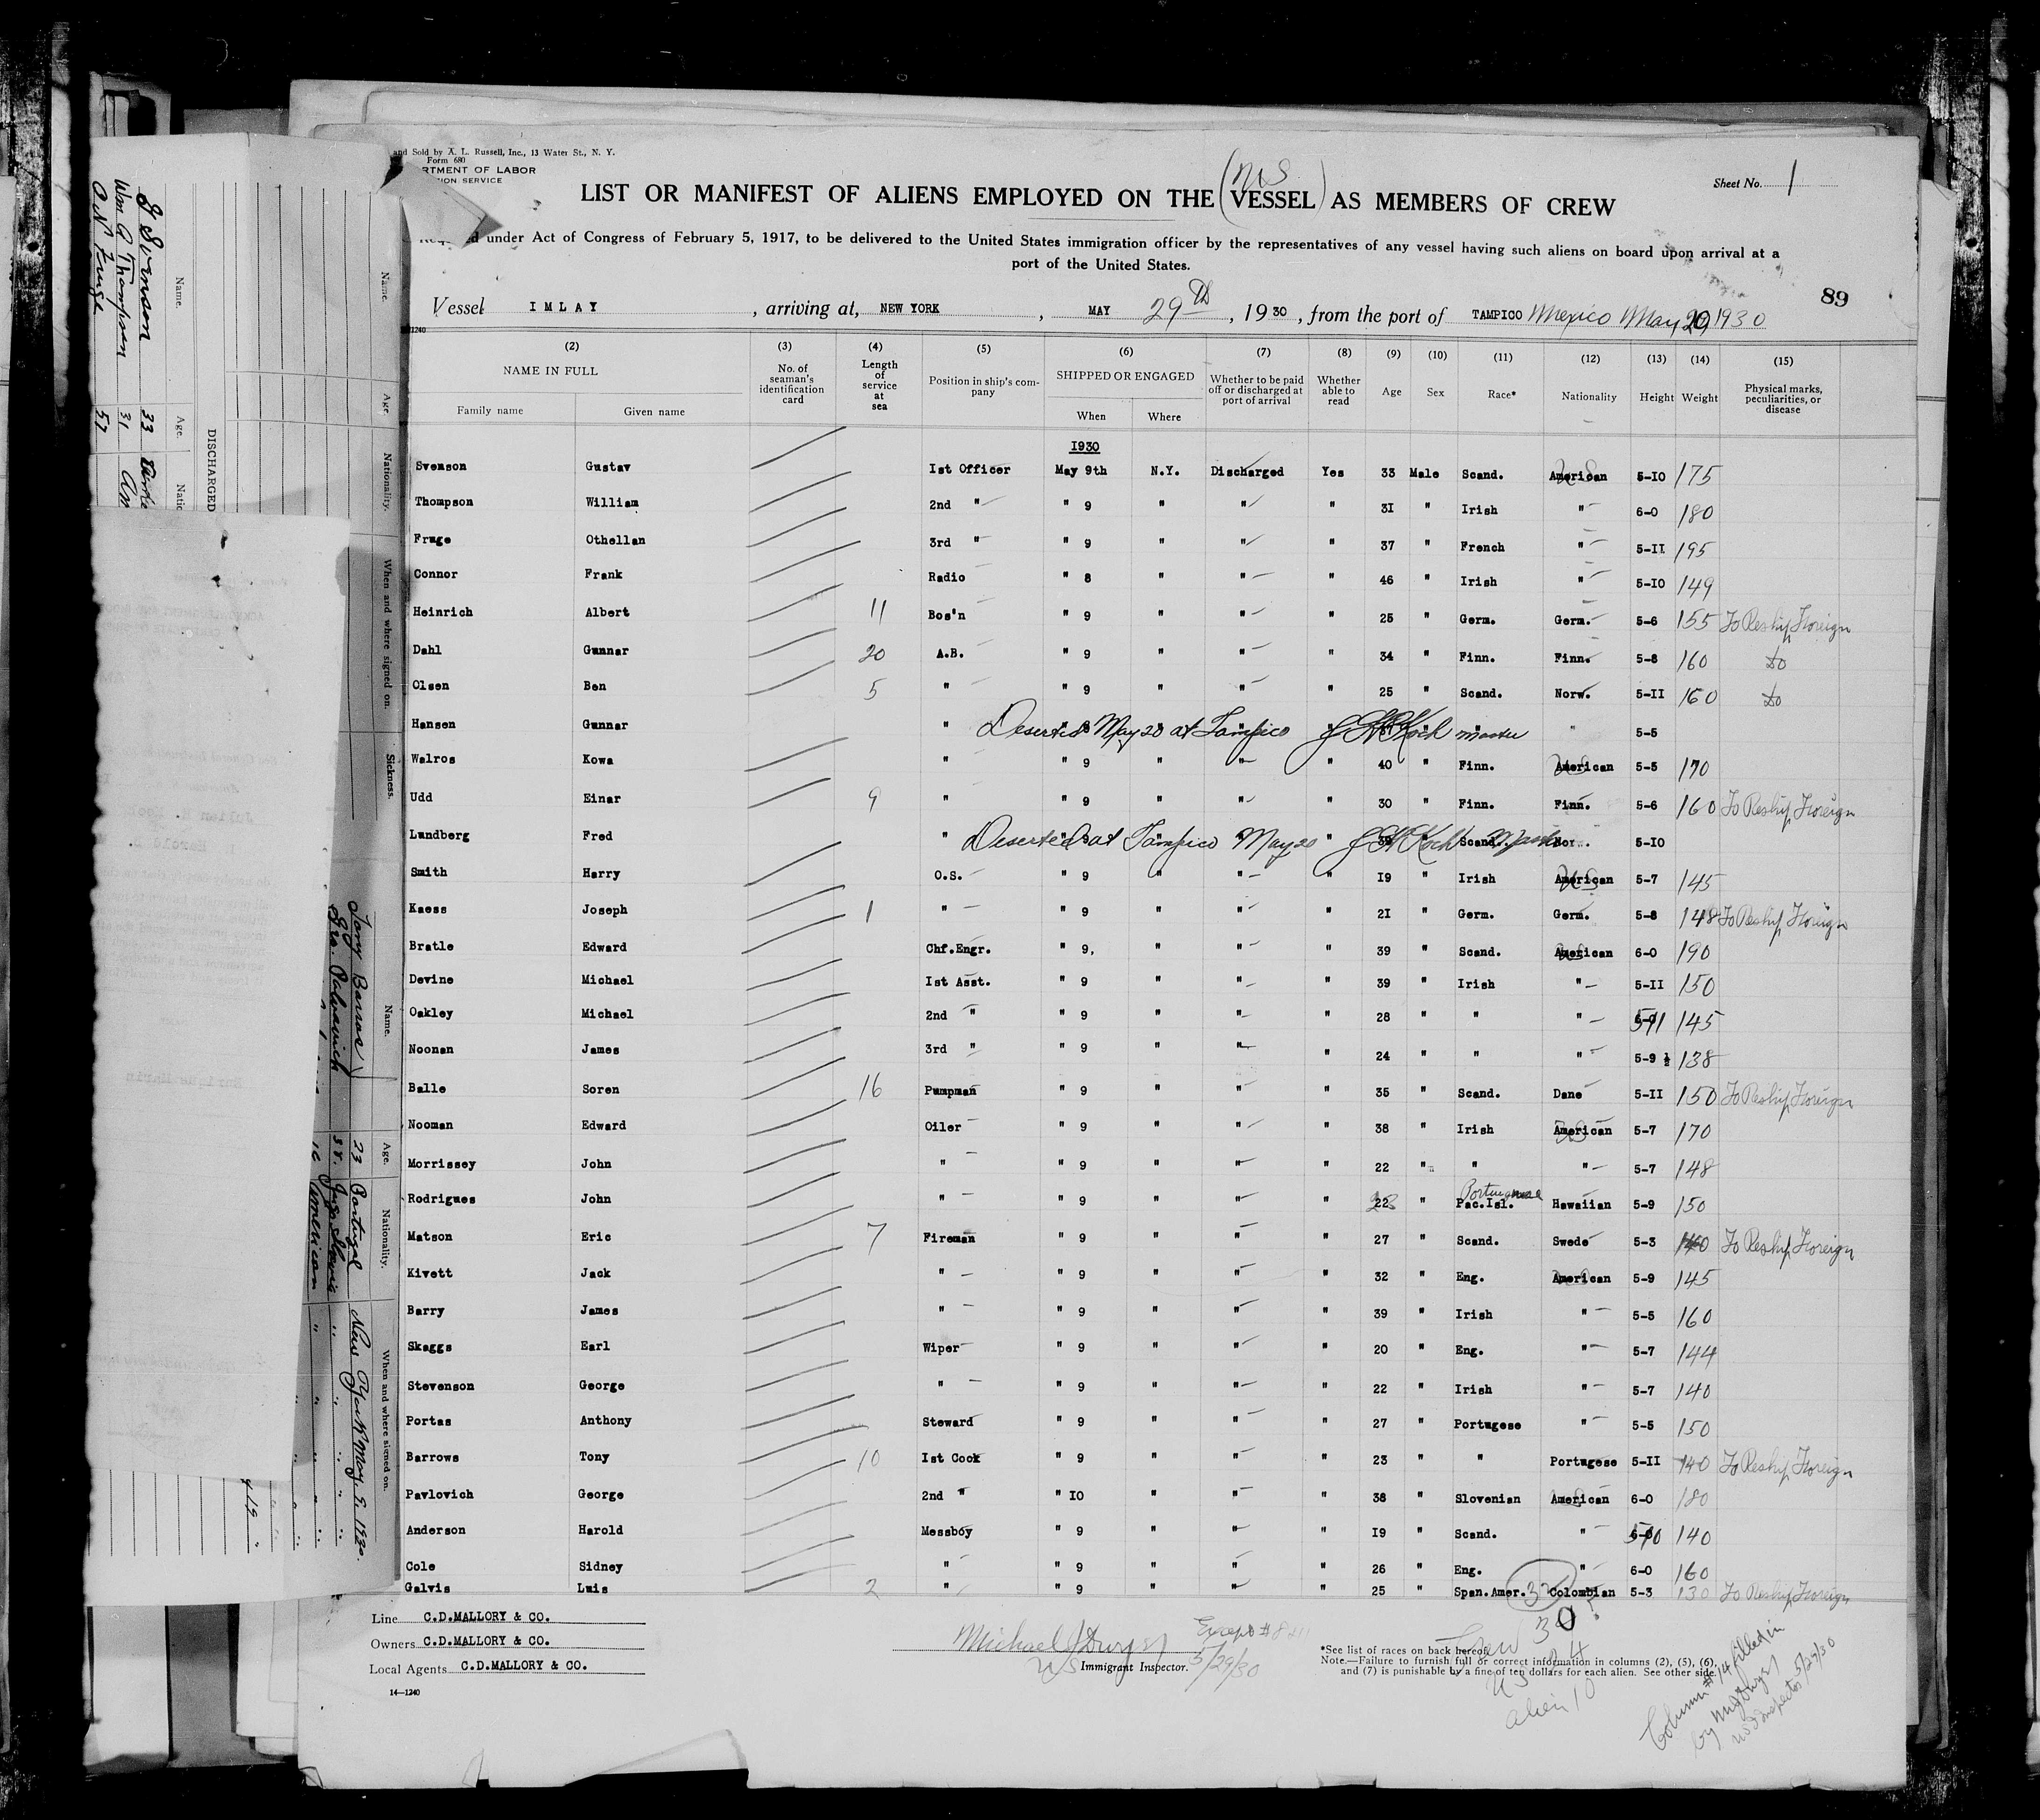 and Sold by A. L. Russell, Inc., 13 Water St., N. Y.
Form 680
RTMENT OF LABOR
TION SERVICE
Sheet No. 1
LIST OR MANIFEST OF ALIENS EMPLOYED ON THE (VESSEL) AS MEMBERS OF CREW
under Act of Congress of February 5, 1917, to be delivered to the United States immigration officer by the representatives of any vessel having such aliens on board upon arrival at a
port of the United States.
89
Vessel IMLAY, arriving at, NEW YORK, MAY 29th, 1930, from the port of TAMPICO Mexico May 20, 1930
(2) (3) (4) (5) (6) (7) (8) (9) (10) (11) (12) (13) (14) (15)
NAME IN FULL No. of seaman's identification card Length of service at sea Position in ship's company SHIPPED OR ENGAGED Whether to be paid off or discharged at port of arrival Whether able to read Age Sex Race* Nationality Height Weight Physical marks, peculiarities, or disease
Family name Given name When Where
1930
Svenson Gustav 1st Officer May 9th N.Y. Discharged Yes 33 Male Scand. American 5-10 175
Thompson William 2nd " " 9 " " " 31 " Irish " 6-0 180
Fruge Othellan 3rd " " 9 " " " 37 " French " 5-11 195
Connor Frank Radio " 8 " " " 46 " Irish " 5-10 149
Heinrich Albert 11 Bos'n " 9 " " " 25 " Germ. Germ. 5-6 155 To Reship Foreign
Dahl Gunnar 20 A.B. " 9 " " " 34 " Finn. Finn. 5-8 160 do
Olsen Ben 5 " " 9 " " " 25 " Scand. Norw. 5-11 160 do
Hansen Gunnar " Deserted May 20 at Tampico J H Koch master " 5-5
Walros Kowa " " 9 " " " 40 " Finn. American 5-5 170
Udd Einar 9 " " 9 " " " 30 " Finn. Finn. 5-6 160 To Reship Foreign
Lundberg Fred " Deserted at Tampico May 20 J H Koch Master Scand. Nor. 5-10
Smith Harry O.S. " 9 " " " 19 " Irish American 5-7 145
Kaess Joseph 1 " " 9 " " " 21 " Germ. Germ. 5-8 148 To Reship Foreign
Bratle Edward Chf.Engr. " 9, " " " 39 " Scand. American 6-0 190
Devine Michael 1st Asst. " 9 " " " 39 " Irish " 5-11 150
Oakley Michael 2nd " " 9 " " " 28 " " " 511 145
Noonan James 3rd " " 9 " " " 24 " " " 5-9 ½ 138
Balle Soren 16 Pumpman " 9 " " " 35 " Scand. Dane 5-11 150 To Reship Foreign
Nooman Edward Oiler " 9 " " " 38 " Irish American 5-7 170
Morrissey John " " 9 " " " 22 " " " 5-7 148
Rodrigues John " " 9 " " " 22 " Portuguese Pac.Isl. Hawaiian 5-9 150
Matson Eric 7 Fireman " 9 " " " 27 " Scand. Swede 5-3 140 To Reship Foreign
Kivett Jack " " 9 " " " 32 " Eng. American 5-9 145
Barry James " " 9 " " " 39 " Irish " 5-5 160
Skaggs Earl Wiper " 9 " " " 20 " Eng. " 5-7 144
Stevenson George " " 9 " " " 22 " Irish " 5-7 140
Portas Anthony Steward " 9 " " " 27 " Portugese " 5-5 150
Barrows Tony 10 1st Cook " 9 " " " 23 " " Portugese 5-11 140 To Reship Foreign
Pavlovich George 2nd " " 10 " " " 38 " Slovenian American 6-0 180
Anderson Harold Messboy " 9 " " " 19 " Scand. " 510 140
Cole Sidney " " 9 " " " 26 " Eng. " 6-0 160
Galvis Luis 2 " " 9 " " " 25 " Span.Amer. Colombian 5-3 130 To Reship Foreign
32
Line C.D.MALLORY & CO.
Owners C.D.MALLORY & CO.
Local Agents C.D.MALLORY & CO.
14—1240
Michael
Except #8 & 11
US Immigrant Inspector. 5/29/30
Crew 30
US 24
alien 10
*See list of races on back hereof.
Note.—Failure to furnish full or correct information in columns (2), (5), (6),
and (7) is punishable by a fine of ten dollars for each alien. See other side.
Column #14 filled in
by
US Inspector 5/29/30
Name. Age. Nationality. When and where signed on. Sickness.
DISCHARGED
Name. Age.
G Svenson 33
Wm. G Thompson 31 Am
O N Fruge 57
Name. Age. Nationality. When and where signed on.
Tony Barros 23 Portugal New York May 9. 1930.
Geo. Palvavich 38. Jugo Slavia
16 American